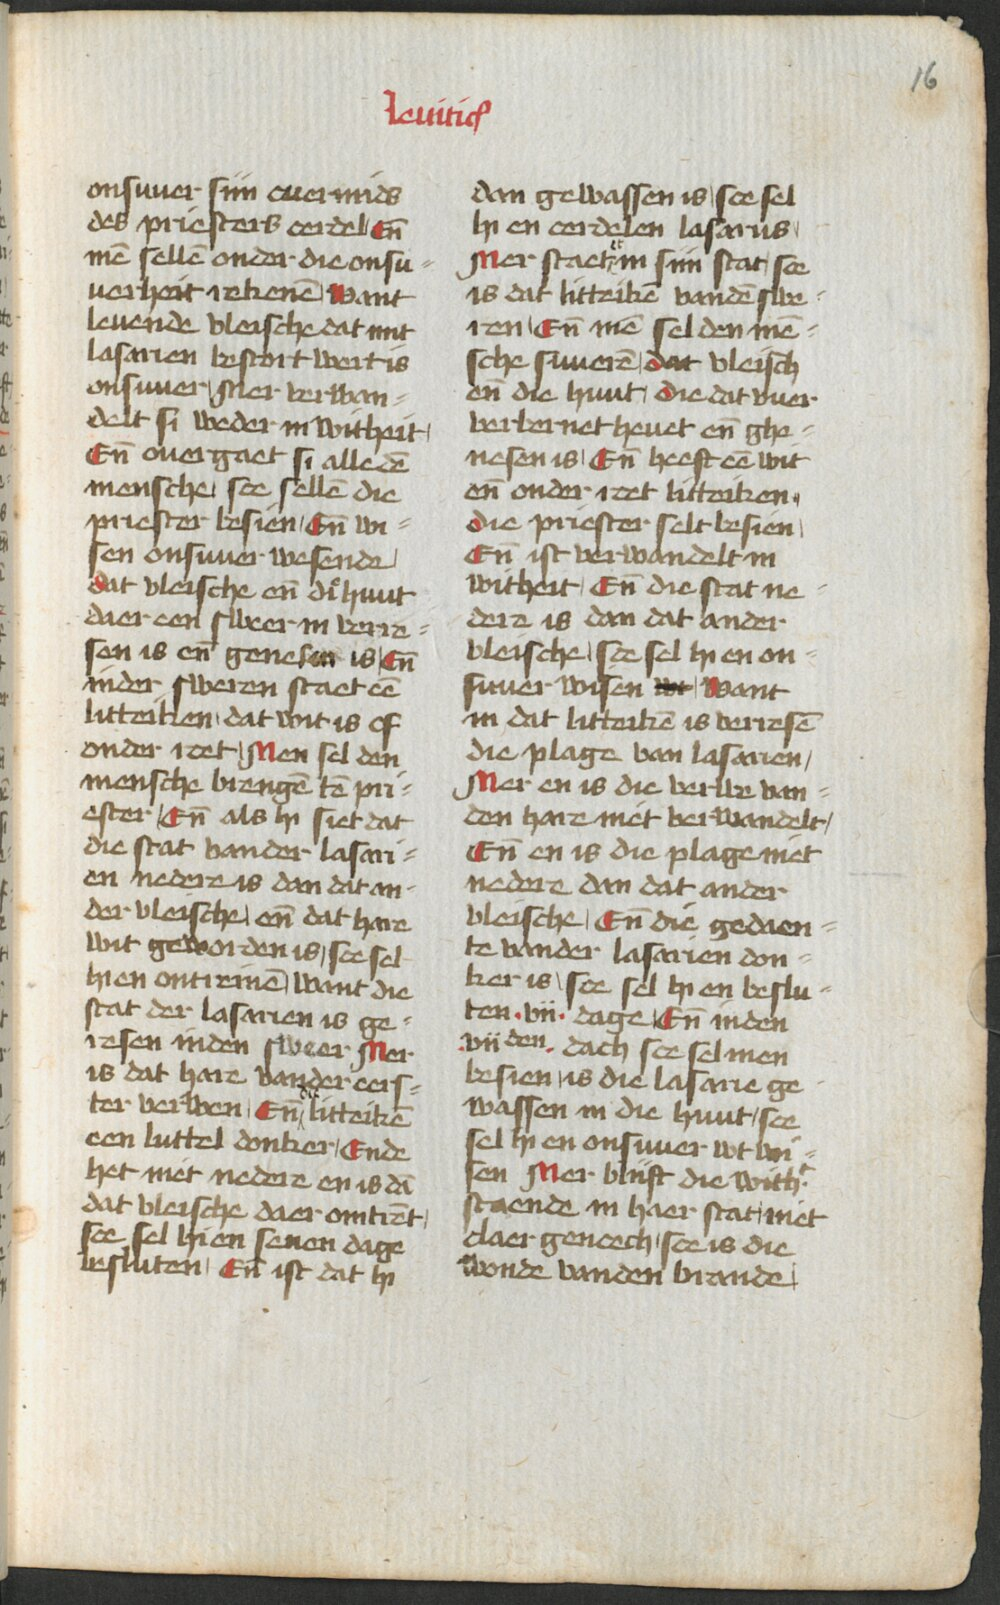 16
Leuiticꝰ
onsuuer siin ouermids
des priesters oerdel Eñ
mē sellē onder die onsu⸗
uerheit rekenē Want
leuende vleische dat mit
lasarien bestort wert is
onsuuer Mer verwan⸗
delt si weder in witheit
Eñ ouergaet si alle dē
mensche soe sellē die
priester besien Eñ wi⸗
sen onsuuer wesende
dat vleische eñ die huut
daer een sweer in verre⸗
sen is eñ genesen is Eñ
inder sweren staet eē
litteiken dat wit is of
onder root Men sel den
mensche brengē tē pri⸗
ester Eñ als hi siet dat
die stat vander lasari⸗
en neder is dan dat an⸗
der vleische eñ dat hare
wit geworden is soe sel
hien ontreinē want die
stat der lasarien is ge⸗
resen inden sweer Mer
is dat hare vander eers⸗
ter verwen Eñ die litteikē
een luttel donker Ende
het niet neder en is dā
dat vleische daer omtrēt
soe sel hien seuen dage
besluten Eñ ist dat hi
dan gewassen is soe sel
hien oerdelen lasarus
Mer staetet in siin stat soe
is dat litteikē vandē swe⸗
ren Eñ mē sel den mē⸗
sche suuerē dat vleisch
eñ die huut die dat vuer
verbernet heuet eñ ghe⸗
nesen is Eñ heeft eē wit
eñ onder root litteiken
die priester selt besien
Eñ ist verwandelt in
witheit Eñ die stat ne⸗
dere is dan dat ander
vleische soe sel hien on⸗
suuer wisen Want
in dat litteikē is verresē
die plage van lasarien
Mer en is die verwe van⸗
den hare niet verwandelt
Eñ en is die plage niet
nedere dan dat ander
vleische Eñ die gedaen⸗
te vander lasarien don⸗
ker is soe sel hien beslu⸗
ten .vii. dage Eñ inden
.vii den. dach soe sel men
besien is die lasarie ge
wassen in die huut soe
sel hien onsuuer wt wi⸗
sen Mer blijft die with
staende in haer stat niet
claer genoech soe is die
wonde vanden brande